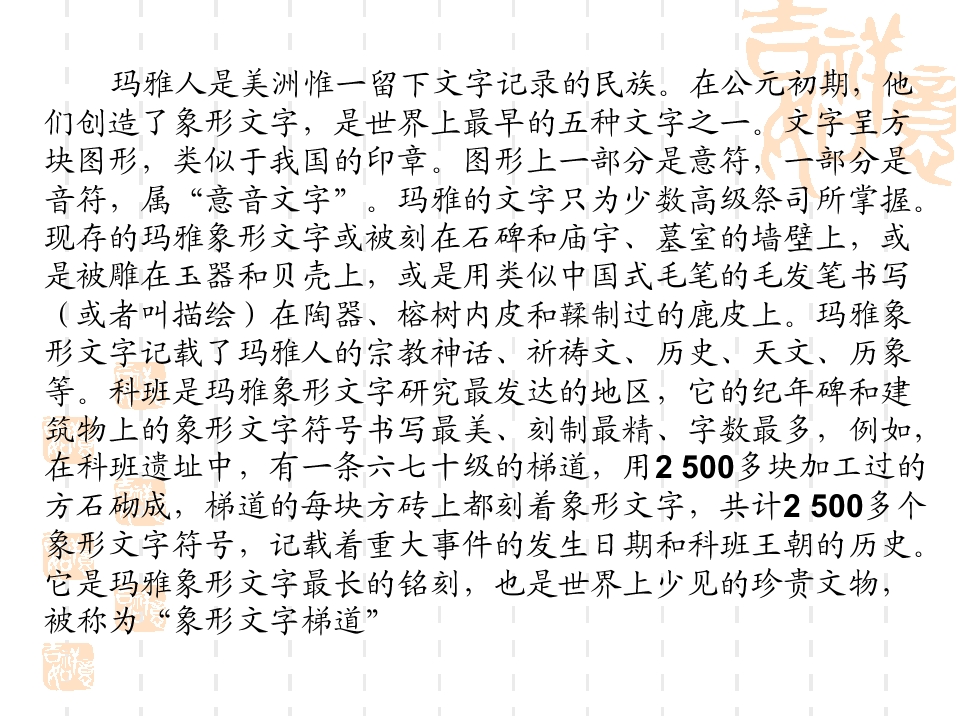 吉祥如意
玛雅人是美洲惟一留下文字记录的民族。在公元初期，他
们创造了象形文字，是世界上最早的五种文字之一。文字呈方
块图形，类似于我国的印章。图形上一部分是意符，一部分是
音符，属“意音文字”。玛雅的文字只为少数高级祭司所掌握。
现存的玛雅象形文字或被刻在石碑和庙宇、墓室的墙壁上，或
是被雕在玉器和贝壳上，或是用类似中国式毛笔的毛发笔书写
（或者叫描绘）在陶器、榕树内皮和鞣制过的鹿皮上。玛雅象
形文字记载了玛雅人的宗教神话、祈祷文、历史、天文、历象
等。科班是玛雅象形文字研究最发达的地区，它的纪年碑和建
筑物上的象形文字符号书写最美、刻制最精、字数最多，例如，
在科班遗址中，有一条六七十级的梯道，用2 500多块加工过的
方石砌成，梯道的每块方砖上都刻着象形文字，共计2 500多个
象形文字符号，记载着重大事件的发生日期和科班王朝的历史。
它是玛雅象形文字最长的铭刻，也是世界上少见的珍贵文物，
被称为“象形文字梯道”
吉祥如意
吉祥如意
吉祥如意
吉祥如意
吉祥如意
吉祥如意